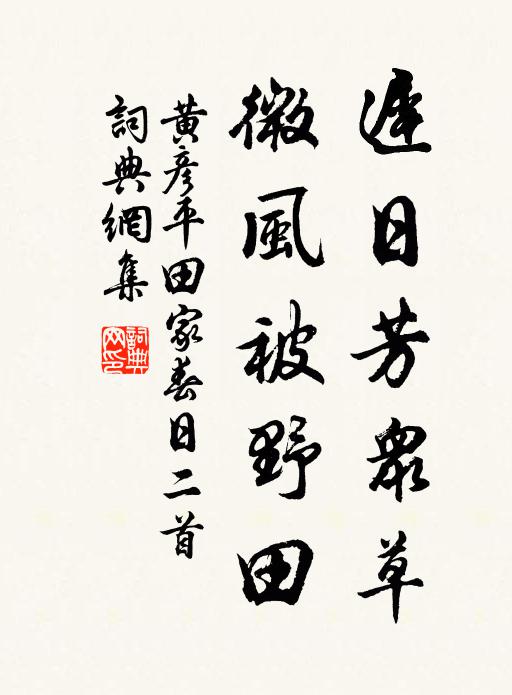 遲日芳眾草
微風被野田
黃彥平田家春日二首
詞典網集
詞典網印